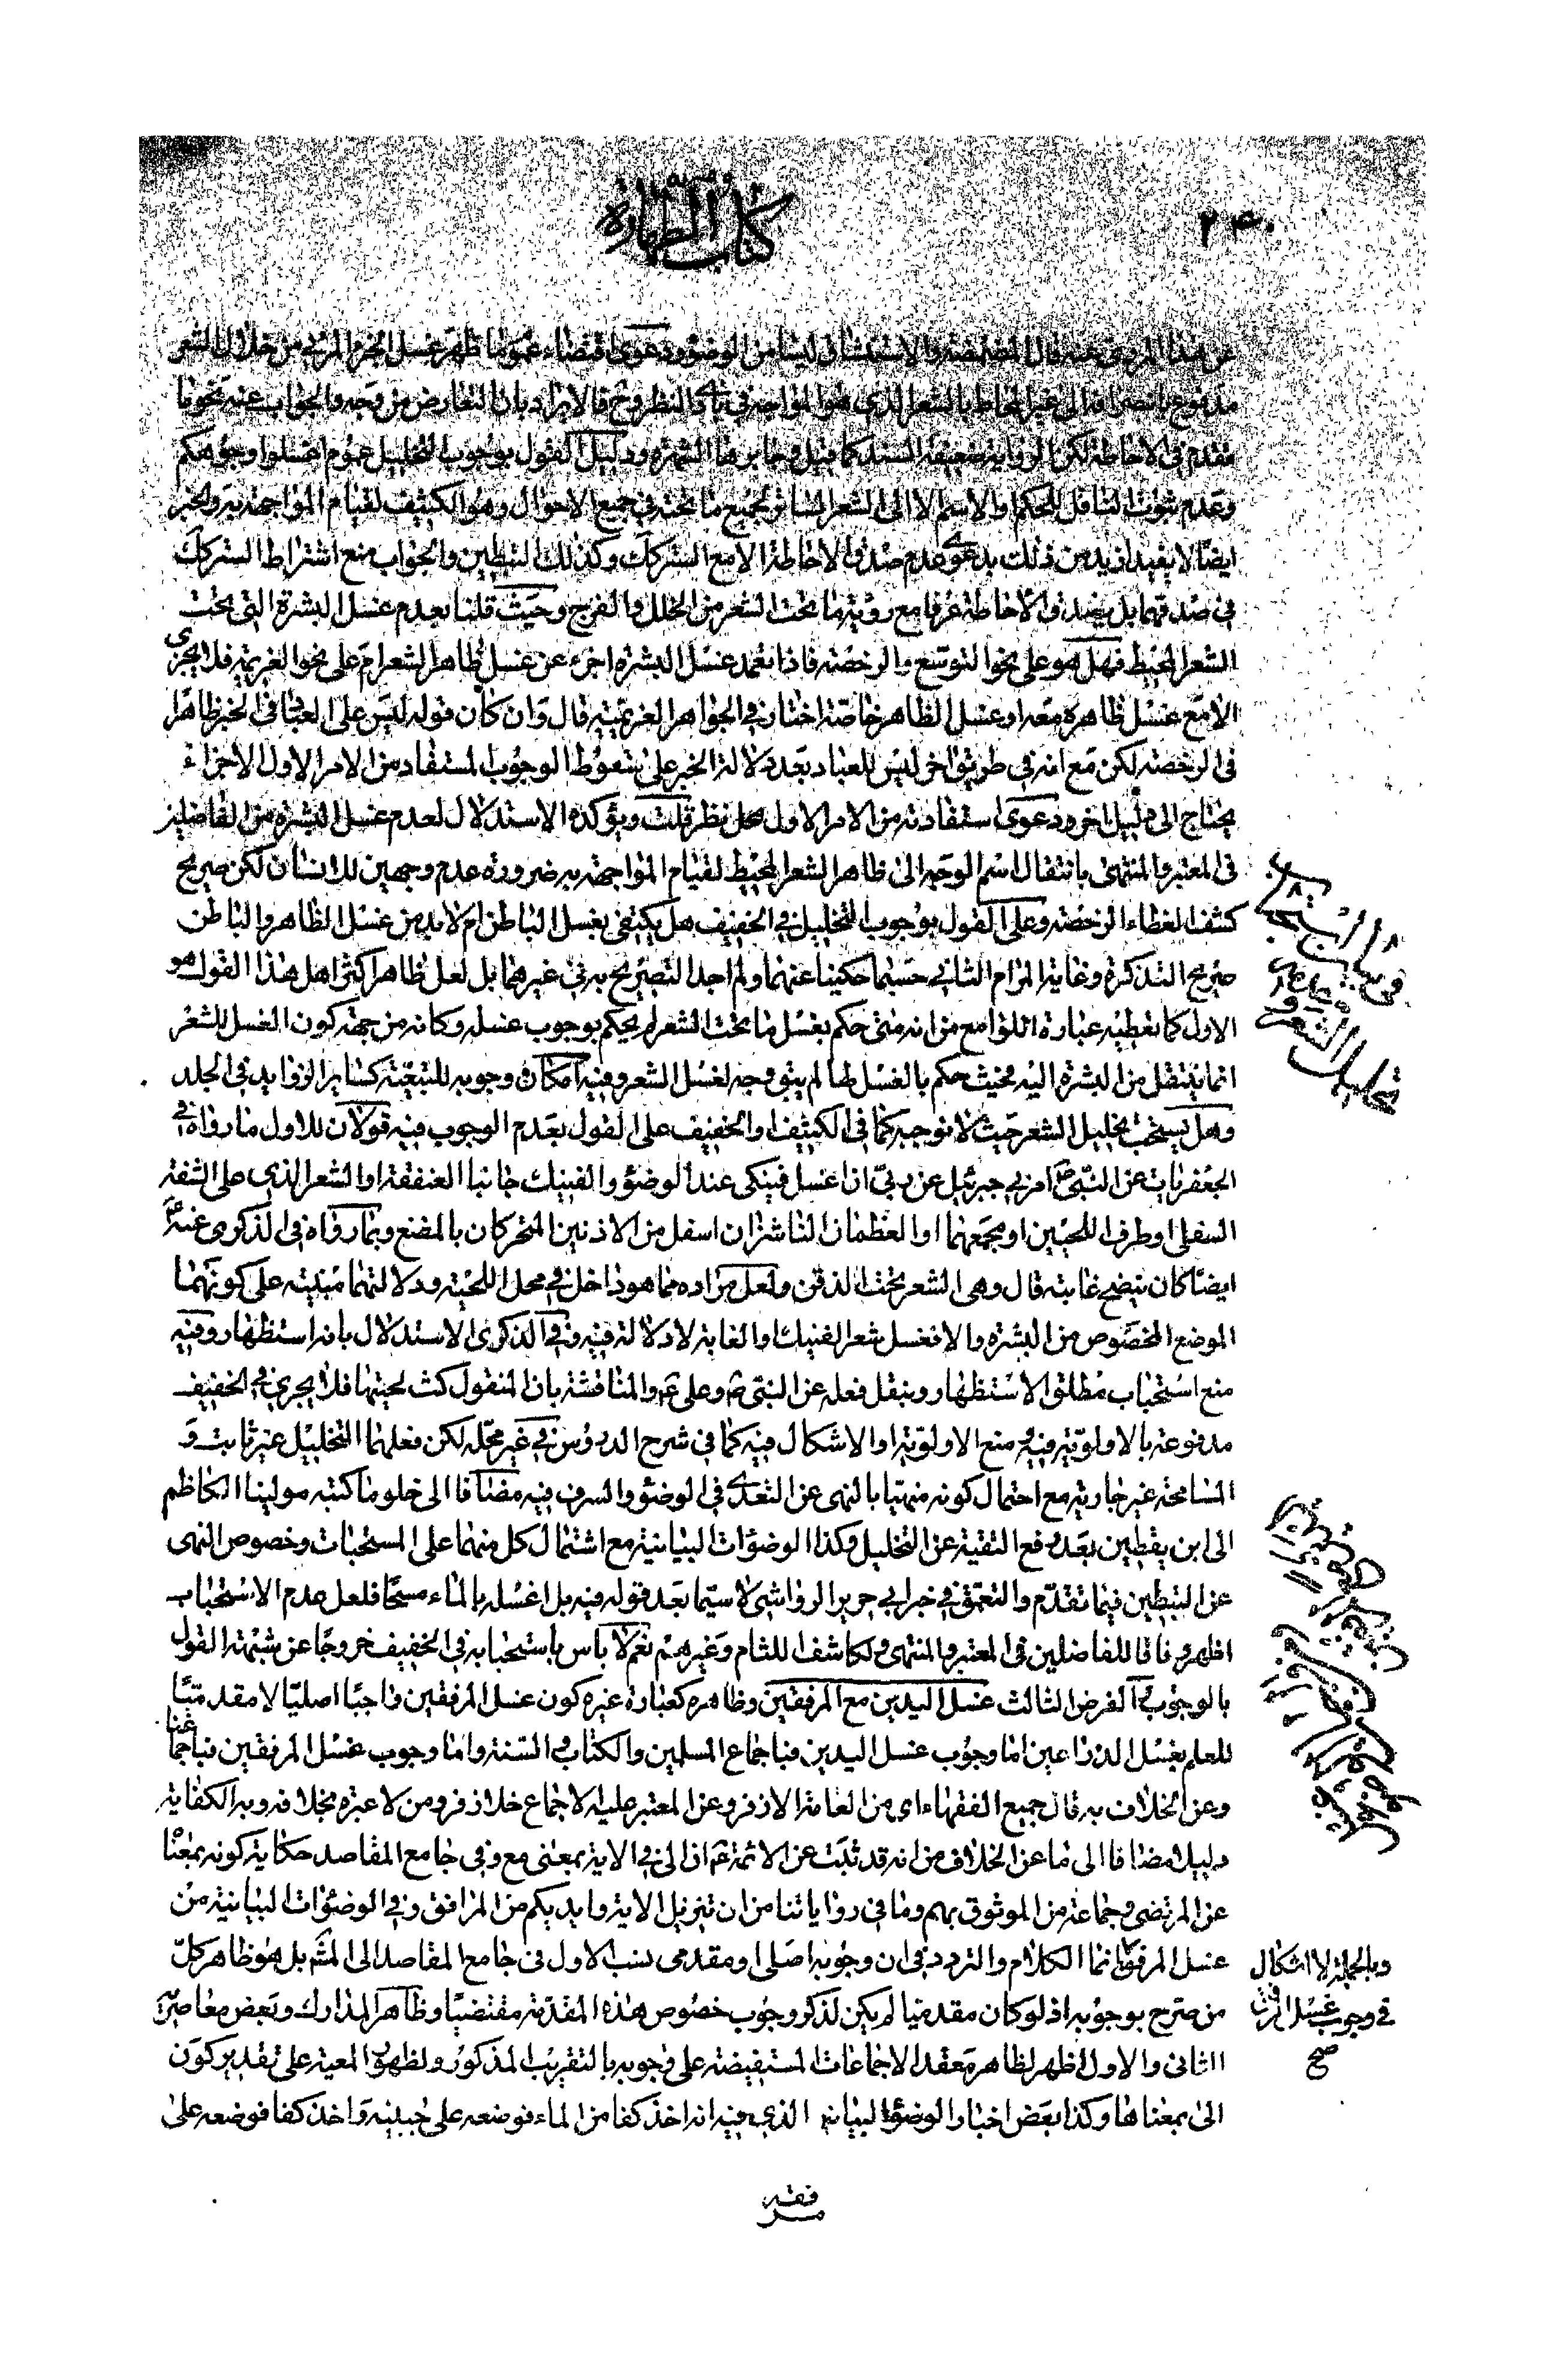 ٢٤٠
كتاب الطهارة
قال المضمضة والاستنشاق ليسا من الوضوء ودعوى اقتضاء عموم ما ظهر غسل الجزء المرئي من خلال الشعر
مدفوع بانصرافه الى غير المحاط بالشعر الذي هو المواجه في بادي النظر وح فالايراد بان التعارض من وجه والجواب عنه بنحو ما
تقدم في الاحاطة لكن الرواية ضعيفة السند كما قيل وجابرها الشهرة ودليل القول بوجوب التخليل عموم اغسلوا وجوهكم
وعدم ثبوت الناقل للحكم او الاسم الا الى الشعر الساتر لجميع ما تحته في جميع الاحوال وهو الكثيف لقيام المواجهة به والخبر
ايضا لا يفيد ازيد من ذلك بدعوى عدم صدق الاحاطة الا مع الستر كك وكذلك التبطين والجواب منع اشتراط الستر كك
في صدقهما بل يصدق الاحاطة عرفا مع رؤية ما تحت الشعر من الخلل والفرج وحيث قلنا بعدم غسل البشرة التي تحت
الشعر المحيط فهل هو على نحو التوسع والرخصة فاذا تعمد غسل البشرة اجزء عن غسل ظاهر الشعر ام على نحو العزيمة فلا يجزي
الا مع غسل ظاهره معه او غسل الظاهر خاصة اختار في الجواهر العزيمية قال وان كان قوله ليس على العباد في الخبر ظاهرا
في الرخصة لكن مع انه في طريق اخر ليس للعباد بعد دلالة الخبر على سقوط الوجوب المستفاد من الامر الاول الاجزاء
يحتاج الى دليل اخر ودعوى استفادته من الامر الاول محل نظر قلت ويؤكده الاستدلال لعدم غسل البشرة من الفاضلين
في المعتبر والمنتهى بانتقال اسم الوجه الى ظاهر الشعر المحيط لقيام المواجهة به ضرورة عدم وجهين للانسان لكن صريح
كشف الغطاء الرخصة وعلى القول بوجوب التخليل في الخفيف هل يكتفى بغسل الباطن ام لا بد من غسل الظاهر والباطن
صريح التذكرة وغاية المرام الثاني حسبما حكينا عنهما ولم اجد التصريح به في غيرهما بل لعل ظاهر اكثر اهل هذا القول هو
الاول كما تعطيه عبارة اللوامع من انه متى حكم بغسل ما تحت الشعر لم يحكم بوجوب غسله وكانه من جهة كون الغسل للشعر
انما ينتقل من البشرة اليه فحيث حكم بالغسل لها لم يبق وجه لغسل الشعر وفيه امكان وجوبه للتبعية كسائر الزوايد في الجلد
وهل يستحب تخليل الشعر حيث لا نوجبه كما في الكثيف او الخفيف على القول بعدم الوجوب فيه قولان للاول ما رواه في
الجعفريات عن النبي ص امرني جبرئيل عن ربي ان اغسل فنيكي عند الوضوء والفنيك جانبا العنفقة او الشعر الذي على الشفة
السفلى او طرف اللحيين او مجمعهما او العظمان الناشزان اسفل من الاذنين المتحركان بالمضغ وبما رواه في الذكرى عنه ص
ايضا كان ينضح غابته قال وهي الشعر تحت الذقن ولعل مراده مما هو داخل في محل اللحية ودلالتهما مبنية على كونهما
الموضع المخصوص من البشرة والا فغسل شعر الفنيك او الغابة لا دلالة فيه وفي الذكرى الاستدلال بانه استظهار وفيه
منع استحباب مطلق الاستظهار وبنقل فعله عن النبي ص وعلي ع والمناقشة بان المنقول كث لحيتهما فلا يجري في الخفيف
مدفوعة بالاولوية فيه ومنع الاولوية او الاشكال فيه كما في شرح الدروس في غير محله لكن فعلهما التخليل غير ثابت و
المسامحة غير جارية مع احتمال كونه منهيا بالنهي عن التعدي في الوضوء والسرف فيه مضافا الى خلو ما كتبه مولينا الكاظم
الى ابن يقطين بعد رفع التقية عن التخليل وكذا الوضوءات البيانية مع اشتمال كل منهما على المستحبات وخصوص النهى
عن التبطين فيما تقدم والتعمق في خبر ابي جرير الرواشي لا سيما بعد قوله فيه بل اغسله بالماء مسحا فلعل عدم الاستحباب
اظهر وفاقا للفاضلين في المعتبر والمنتهى وكاشف اللثام وغيرهم نعم لا باس باستحبابه في الخفيف خروجا عن شبهة القول
بالوجوب الفرض الثالث غسل اليدين مع المرفقين وظاهره كعبارة غيره كون غسل المرفقين واجبا اصليا لا مقدميا
للعلم بغسل الذراعين اما وجوب غسل اليدين فباجماع المسلمين والكتاب والسنة واما وجوب غسل المرفقين فباجماعنا
وعن الخلاف به قال جميع الفقهاء اي من العامة الا زفر وعن المعتبر عليه الاجماع خلا زفر ومن لا عبرة بخلافه وبه الكفاية
دليلا مضافا الى ما عن الخلاف من انه قد ثبت عن الائمة ع ان الى في الاية بمعنى مع وفي جامع المقاصد حكاية كونه بمعناها
عن المرتضى وجماعة من الموثوق بهم وما في رواياتنا من ان تنزيل الاية وايديكم من المرافق وفي الوضوءات البيانية من
غسل المرفق انما الكلام والتردد في ان وجوبه اصلى او مقدمى نسب الاول في جامع المقاصد الى المشهور بل هو ظاهر كل
من صرح بوجوبه اذ لو كان مقدميا لم يكن لذكر وجوب خصوص هذه المقدمة مقتضيا وظاهر المدارك وبعض معاصرينا
الثانى والاول اظهر لظاهر معقد الاجماعات المستفيضة على وجوبه بالتقريب المذكور ولظهور المعية على تقدير كون
الى بمعناها وكذا بعض اخبار الوضوء البيانية الذي فيه انه اخذ كفا من الماء فوضعه على جبينه واخذ كفا فوضعه على
وبالجملة لا اشكال
في وجوب غسل المرفق
صح
فقه